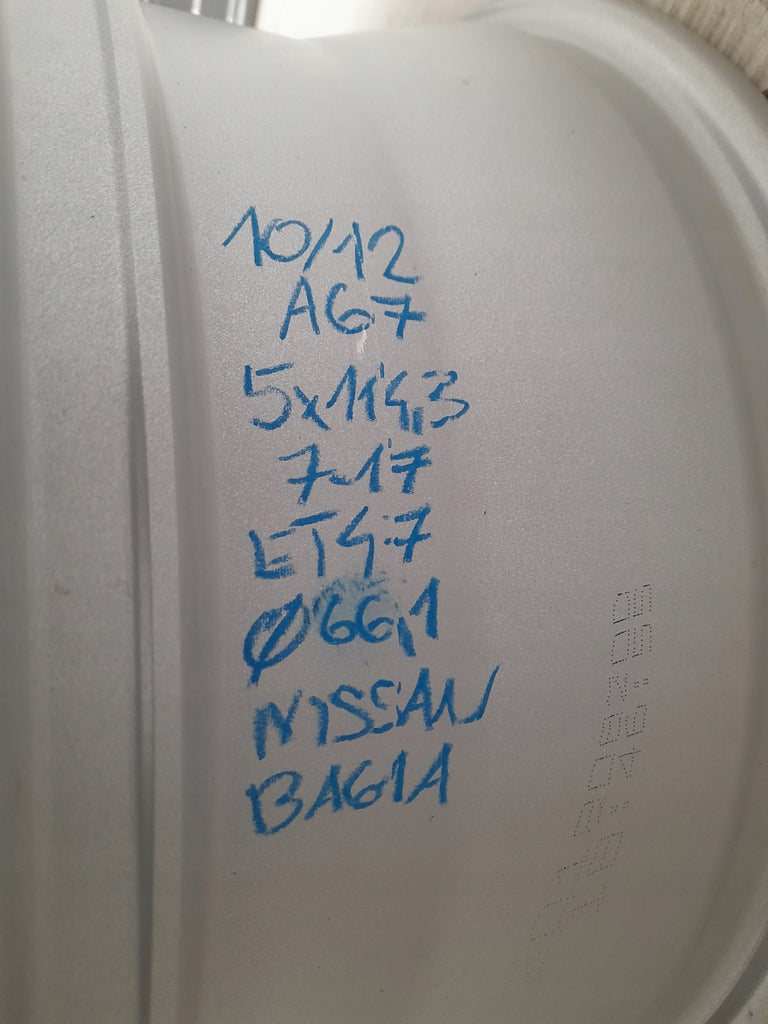 10/12
A67
5x114,3
7.17
ET47
Ø66,1
NISSAN
BA61A